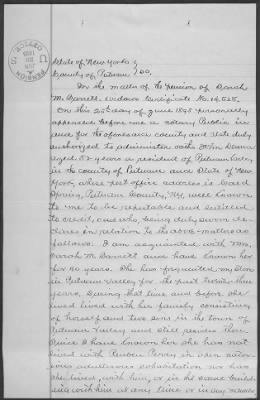 State of New York }
County of Putnam } SS.
In the matter of the Pension of Sarah
M. Barrett. Widows Certificate No.
On this 25th day of June 1895 personally
appeared before me a Notary Public in
and for the aforesaid County and State duly
authorized to administer oaths John
aged 52 years a resident of Putnam Valley
in the County of Putnam and State of New
York, whose post office address is Cold
Spring, Putnam County, N.Y. well known
to me to be reputable and entitled
to credit, and who, being duly sworn de-
clares in relation to the above matter as
follows: I am acquainted with Mrs.
Sarah M. Barrett and have known her
for 40 years. She has frequented my store
in Putnam Valley for the past twenty three
years, during that time and before she
has lived with her family consisting
of herself and two sons in the town of
Putnam Valley and still resides there.
Since I have known her she has not
lived with Reuben Perry in open notor-
ious adulterous cohabitation nor has
she lived with him, or in the same build-
ing with him at any time or in any manner